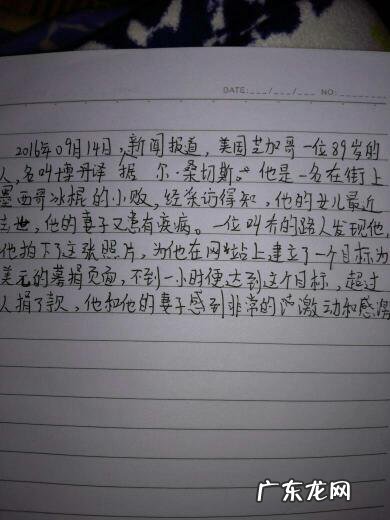 DATE:___/___/___ NO:
2016年09月14日,新闻报道,美国芝加哥一位89岁的
人,名叫 据 尔·桑切斯。他是一名在街上
墨西哥冰棍的小败,经采访得知,他的女儿最近
去世,他的妻子又患有疾病。一位叫 的路人发现他,
他拍下了这张照片,为他在网站上建立了一个目标为
美元的募捐页面,不到一小时便达到这个目标,超过
人捐了款,他和他的妻子感到非常的 激动和感激
广东龙网